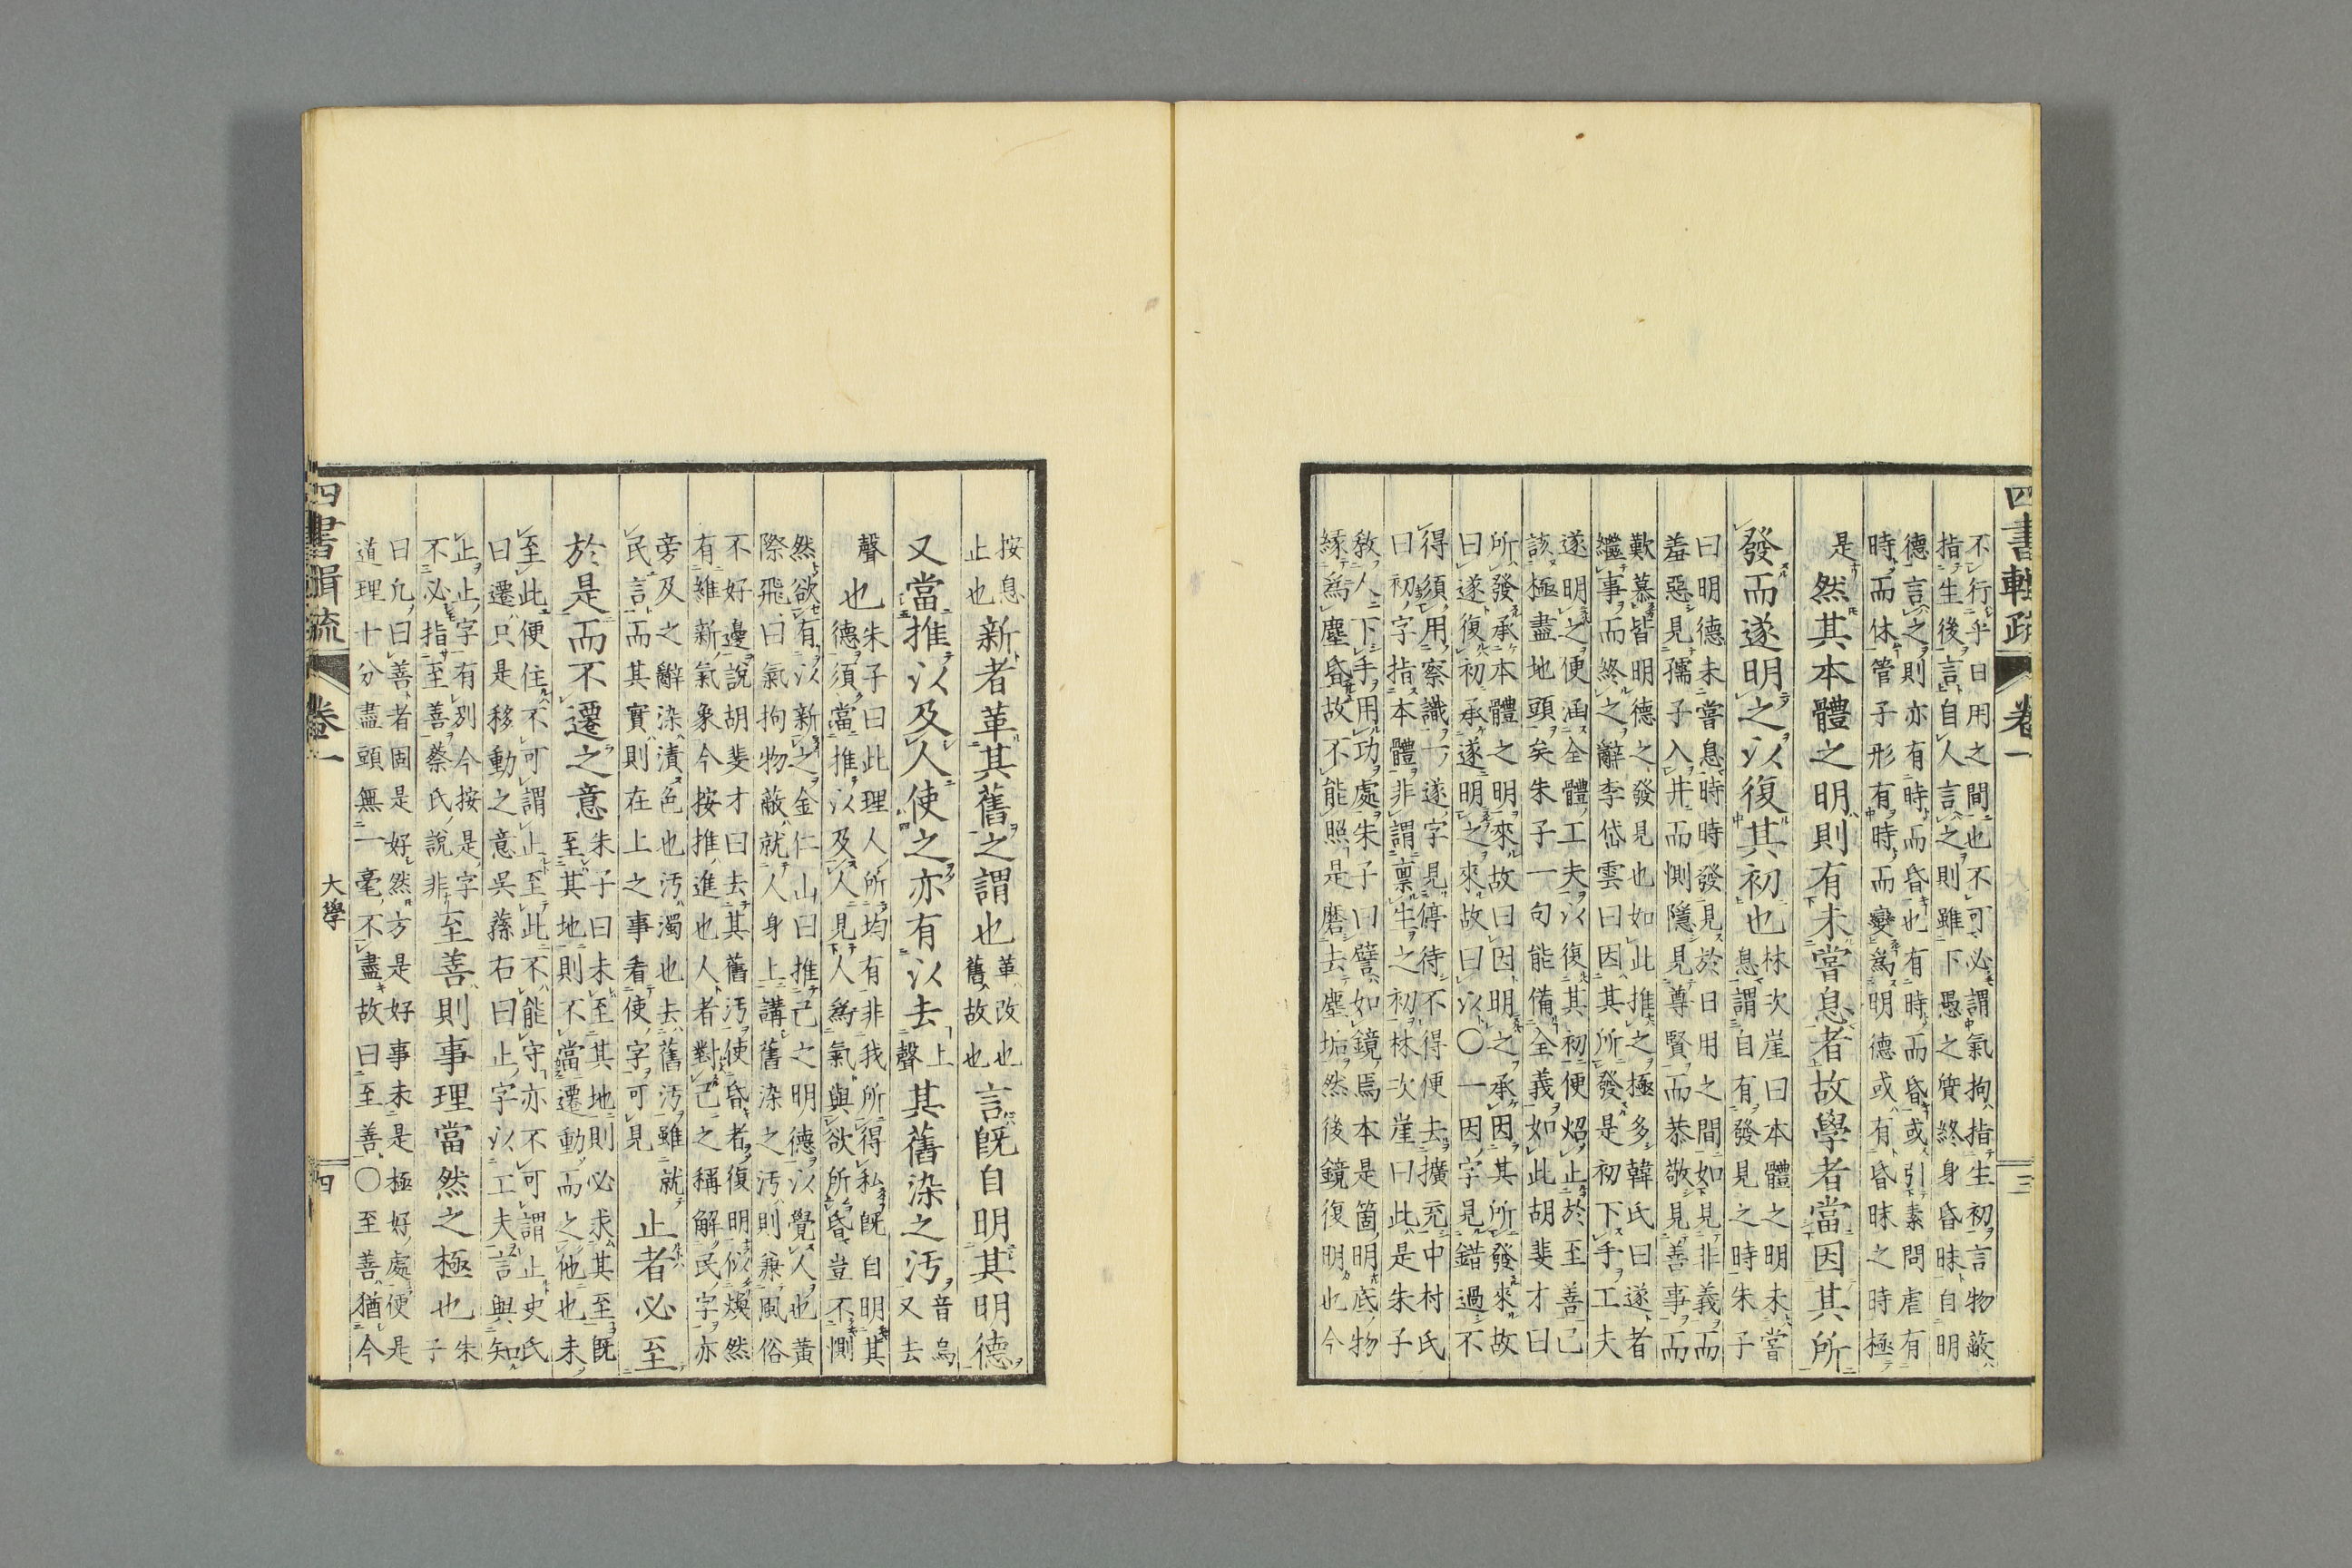 四書輯疏 卷一 三
不行乎日用之間也不可必謂氣拘指生初言物蔽
指生後言自人言之則雖下愚之質終身昏昧自明
德言之則亦有時而昏也有時而昏或引素問虐有
時而休管子形有時而變爲明德或有昏昧之時極
是
然其本體之明則有未嘗息者故學者當因其所
發而遂明之以復其初也
林次崖曰本體之明未嘗
息謂自有發見之時朱子
曰明德未嘗息時時發見於日用之間如見非義而
羞惡見孺子入井而惻隱見尊賢而恭敬見善事而
歎慕皆明德之發見也如此推之極多韓氏曰遂者
繼事而終之辭李岱雲曰因其所發是初下手工夫
遂明之便涵全體工夫以復其初便炤止於至善已
該極盡地頭矣朱子一句能備全義如此胡斐才曰
所發承本體之明來故曰因明之承因其所發來故
曰遂復初承遂明之來故曰以〇一因字見錯過不
得須用察識一遂字見停待不得便去擴充中村氏
曰初字指本體非謂禀生之初林次崖曰此是朱子
敎人下手用功處朱子曰譬如鏡焉本是箇明底物
緣爲塵昏故不能照是磨去塵垢然後鏡復明也今
按息
止也
新者革其舊之謂也
革改也
舊故也
言既自明其明德
又當推以及人使之亦有以去
上
聲
其舊染之汚
音烏
又去
聲
也
朱子曰此理人所均有非我所得私既自明其
德須當推以及人見人爲氣與欲所昏豈不惻
然欲有以新之金仁山曰推己之明德以覺人也黃
際飛曰氣拘物蔽就人身上講舊染之汚則兼風俗
不好邊說胡斐才曰去其舊汚使昏者復明似煥然
有維新氣象今按推進也人者對己之稱解民字亦
旁及之辭染漬色也汚濁也去舊汚雖就
民言而其實則在上之事看使字可見
止者必至
於是而不遷之意
朱子曰未至其地則必求其至既
至其地則不當遷動而之他也未
至此便住不可謂止至此不能守亦不可謂止史氏
曰遷只是移動之意吳蓀右曰止字以工夫言與知
止止字有別今按是字
不必指至善蔡氏說非
至善則事理當然之極也
朱
子
曰凢曰善者固是好然方是好事未是極好處便是
道理十分盡頭無一毫不盡故曰至善〇至善猶今
四書輯疏 卷一 大學 四